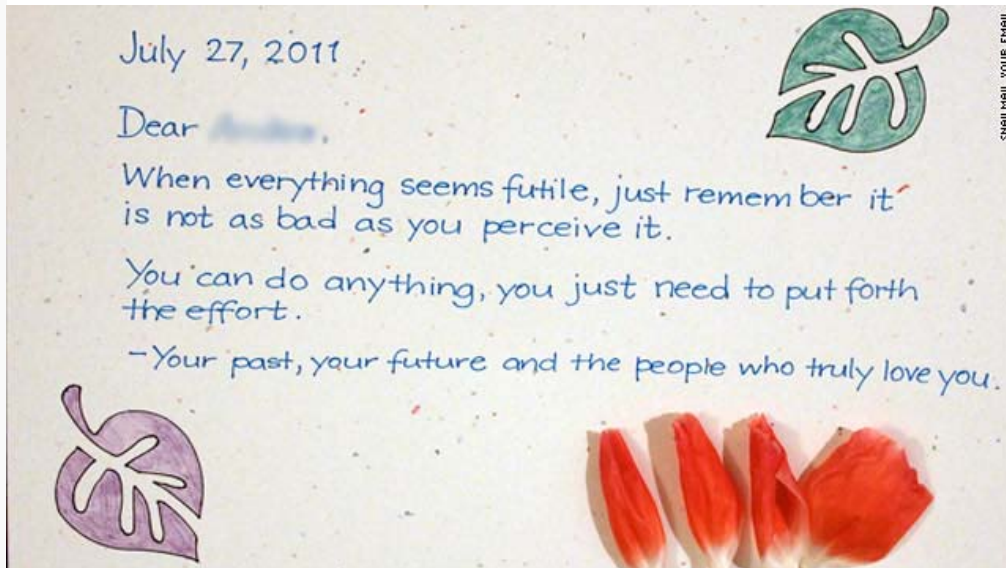 July 27, 2011
Dear
When everything seems futile, just remember it
is not as bad as you perceive it.
You can do anything, you just need to put forth
the effort.
-Your past, your future and the people who truly love you.
SNAIL MAIL YOUR EMAIL